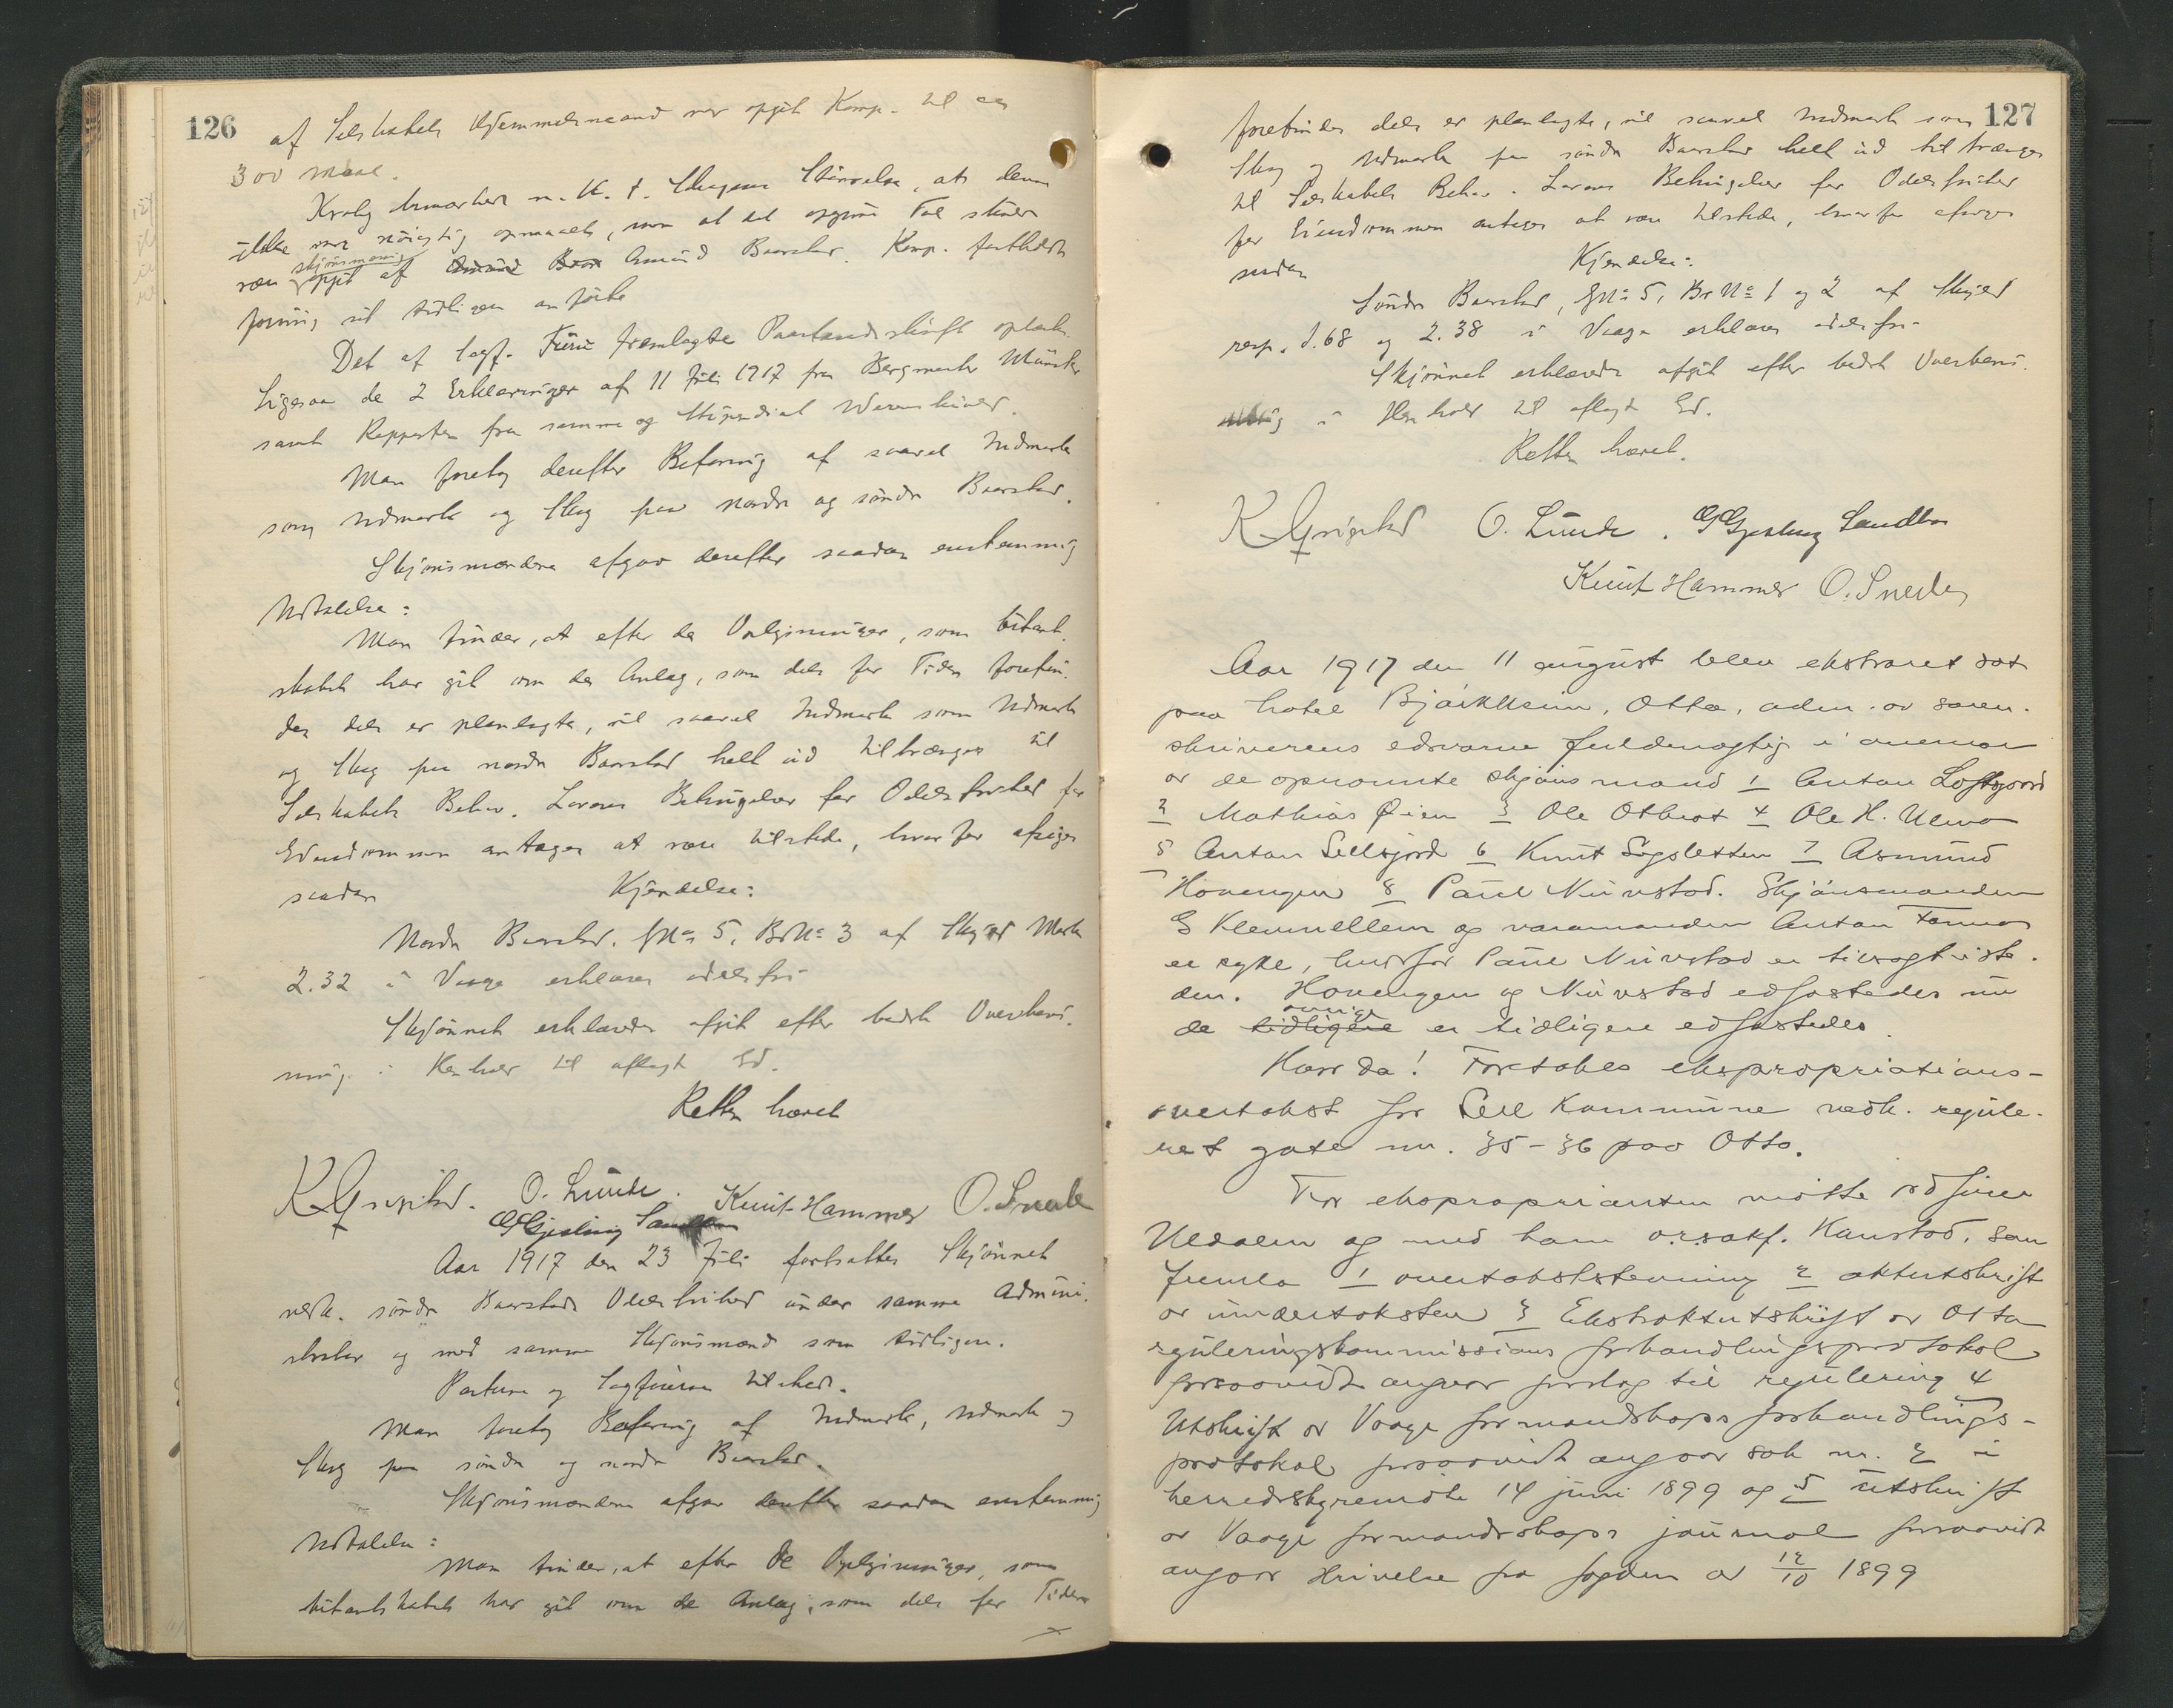 126
af Selskabets Hjemmelsmand var opgit Komp. til ca
300 Maal.
Krolig bemærket m. H. t. Skogens Størrelse, at denne
ikke var nöiagtig opmaalt, men at det opgivne Tal skulde
være skjönsmæssig opgit af Amund Baarstad. Komp. fastholdt
sit tidligere anförte
Det af Sagf. fremlagte Paastandsskrift oplæst.
Ligesaa de 2 Erklæringer af 11 Juli 1917 fra Bergmester Münster
samt Rapporten fra samme og Stipendiat
Man foretog derefter Befaring af saavel Indmark
som Udmark og Skog paa nordre og söndre Baarstad.
Skjönsmændene afgav derefter saadan enstemmig
Udtalelse:
Man finder, at efter de Oplysninger, som
har git om de Anlæg, som dels for Tiden forefin-
des dels er planlagte, vil saavel Indmark som Udmark
og Skog paa nordre Baarstad helt ud tiltrænges til
Selskabets Behov. Lovens Betingelser for Odelsfrihed for
Eiendommen antages at være tilstede, hvorfor afsiges
saadan Kjendelse:
Nordre Baarstad, GNo 5, BrNo 3 af Skyld Mark
2.32 i Vaage erklæres odelsfri
Skjönnet erklæredes afgit efter bedste Overbevis-
ning i Henhold til aflagt Ed.
Retten hævet
K Gripstad. O. Lunde. Knut Hammer O. Snerle
G Gjesling Sandbu
Aar 1917 den 23 Juli fortsattes Skjönnet
vedk. söndre Baarstads Odelsfrihed under samme Admini-
strator og med samme Skjönsmænd som tidligere.
Parterne og Sagförerne tilstede.
Man foretog Befaring af Indmark, Udmark og
Skog paa söndre og nordre Baarstad.
Skjönsmændene afgav derefter saadan enstemmig
Udtalelse:
Man finder, at efter de Oplysninger, som
har git om de Anlæg, som dels for Tiden
127
forefindes dels er planlagte, vil saavel Indmark som
Skog og Udmark paa söndre Baarstad helt ud tiltrænges
til Selskabets Behov. Lovens Betingelser for Odelsfrihet
for Eiendommen antages at være tilstede, hvorfor afsiges
saadan Kjendelse:
Söndre Baarstad, GNo 5, BrNo 1 og 2 af Skyld
resp. 1.68 og 2.38 i Vaage erklæres odelsfri
Skjönnet erklæredes afgit efter bedste Overbevis-
ning i Henhold til aflagt Ed.
Retten hævet.
K Gripstad O. Lunde. G Gjesling Sandbu
Knut Hammer O. Snerle
Aar 1917 den 11 august blev ekstraret sat
paa hotel Bjørkheim, Otta, adm. av soren-
skriverens edsvorne fuldmægtig i nærvær
av de opnævnte skjøns mænd 1 Anton Loftsgard
2 Mathias Øien 3 Ole Ottbrot 4 Ole H. Ulmo
5 Anton Selsjord 6 Knut Sogsletten 7 Asmund
Hovengen 8 Paul Nürstad. Skjønsmanden
G Klemellem og varamanden Anton Formo
er syke, hvorfor Paul Nürstad er tilsagt iste-
den. Hovengen og Nürstad edfæstedes nu
de tidligere øvrige er tidligere edfæstedes.
Hvor da! Foretokes ekspropriations-
overtakst for Sell Kommune vedk. regule-
ret gate nr. 35-36 paa Otta.
For eksproprianten møtte ordfører
Uldalen og med ham o.r.sakf. Kaurstad, som
fremla 1 overtakststevning 2 aktutskrift
av undertaksten 3 Ekstraktutskrift av Otta
reguleringskommissions forhandlingsprotokol
forsaavidt angaar forslag til regulering 4
Utskrift av Vaage formandskaps forhandlings-
protokol forsaavidt angaar sak nr. 2 i
herredsstyremøte 14 juni 1899 og 5 utskrift
av Vaage formandskaps journal forsaavidt
angaar skrivelse fra fogden av 12/10 1899